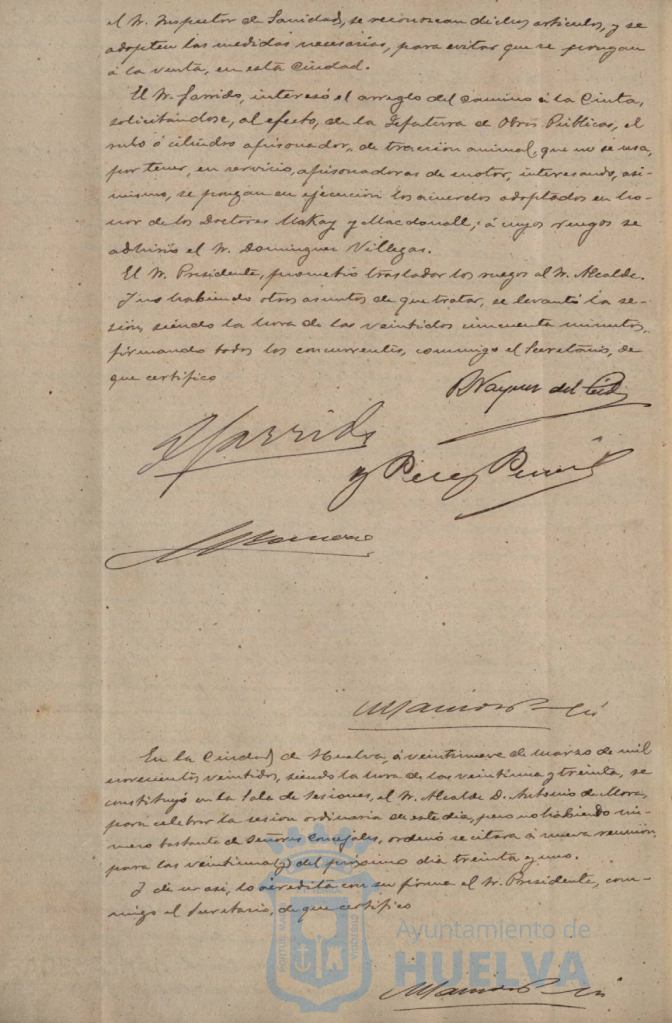 el Sr. Inspector de Sanidad, se reconozcan dichos artículos, y se
adopten las medidas necesarias, para evitar que se pongan
á la venta, en esta Ciudad.
El Sr. Garrido, interesó el arreglo del camino á la Cinta,
solicitándose, al efecto, de la Jefatura de Obras Públicas, el
rulo ó cilindro apisonador, de tracción animal, que no se usa,
por tener, en servicio, apisonadoras de motor, interesando, asi-
mismo, se pongan en ejecución los acuerdos adoptados en ho-
nor de los Doctores Mackay y Macdonall; á cuyos ruegos se
adhirió el Sr. Dominguez Villegas.
El Sr. Presidente, prometió trasladar los ruegos al Sr. Alcalde.
Y no habiendo otros asuntos de que tratar, se levantó la se-
sión, siendo la hora de las veintidos cincuenta minutos,
firmando todos los concurrentes, conmigo el Secretario, de
que certifico
Garrido
y Perez
En la Ciudad de Huelva, á veintinueve de marzo de mil
novecientos veintidos, siendo la hora de las veintiuna y treinta, se
constituyó en la Sala de Sesiones, el Sr. Alcalde D. Antonio de Mora,
para celebrar la sesión ordinaria de este dia, pero no habiendo nú-
mero bastante de Señores Concejales, ordenó se citara á nueva reunión,
para las veintiuna (y) del próximo dia treinta y uno.
Y de no así, lo acredita con su firma el Sr. Presidente, con-
migo el Secretario, de que certifico
Ayuntamiento de
HUELVA
PORTUS MARIS
CUSTODIA